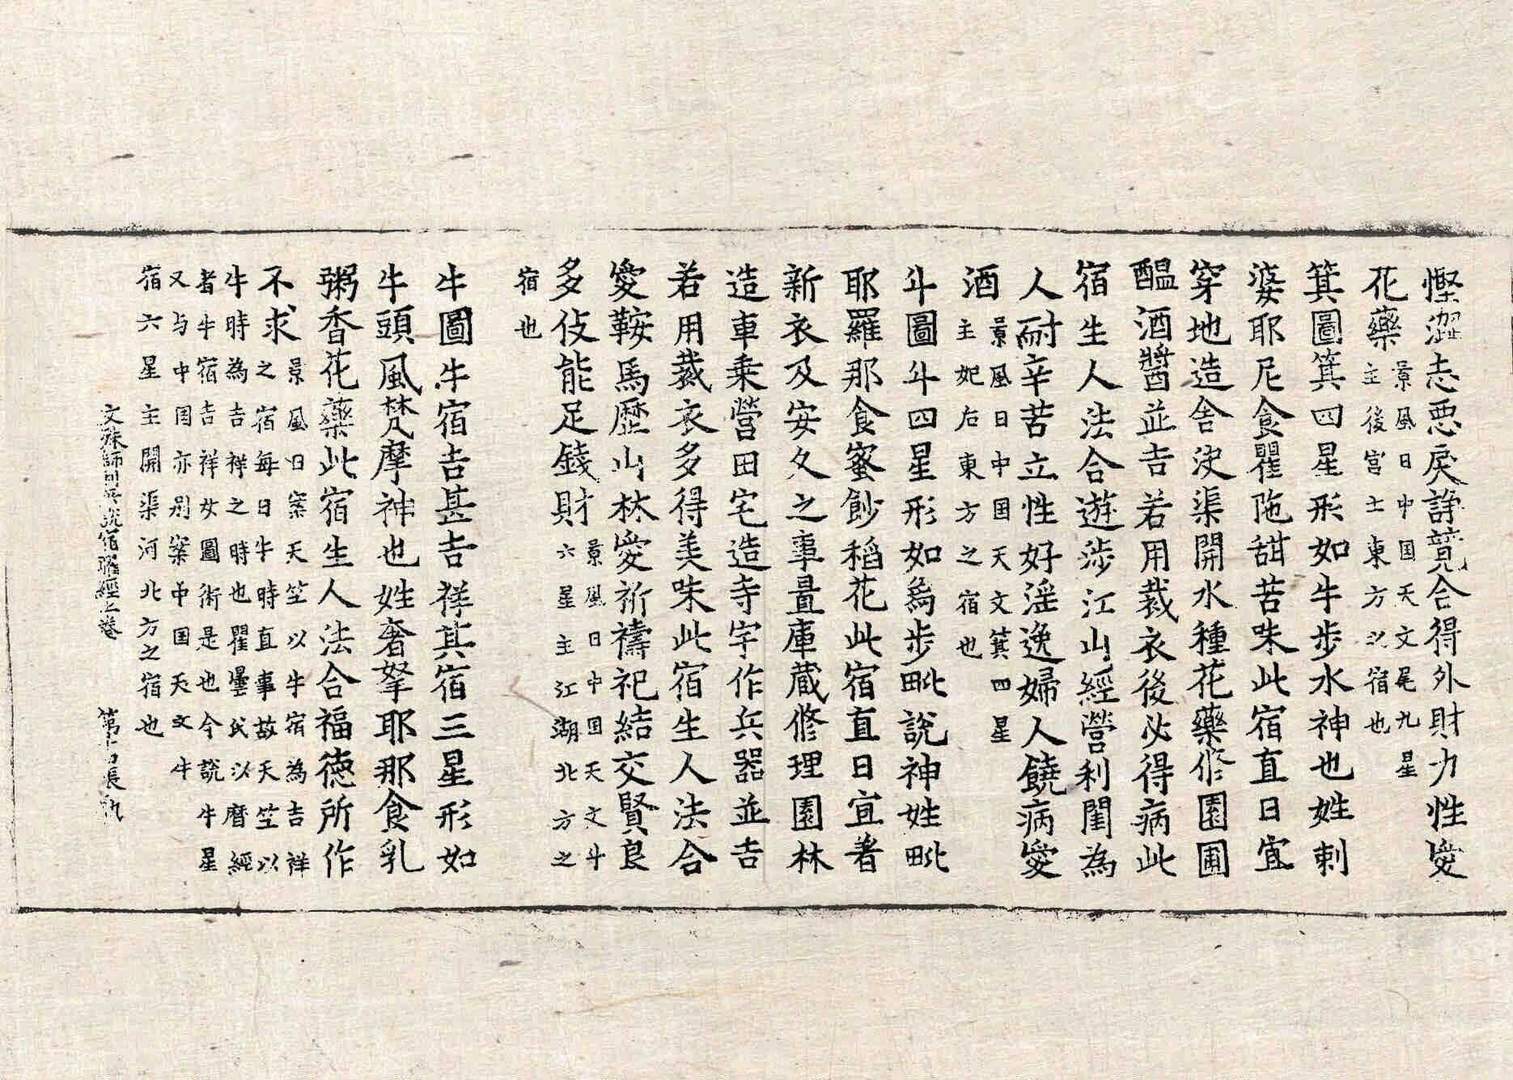 慳澀志惡戾諍競合得外財力性愛
花藥景風日中国天文尾九星主後宮士東方之宿也
箕圖箕四星形如牛步水神也姓剌
婆耶尼食瞿陁甜苦味此宿直日宜
穿地造舍决渠開水種花藥修園圃
醖酒醬並吉若用裁衣後必得病此
宿生人法合遊涉江山經營利閏為
人耐辛苦立性好淫逸婦人饒病愛
酒景風日中国天文箕四星主妃后東方之宿也
斗圖斗四星形如為步毗說神姓毗
耶羅那食蜜麨稻花此宿直日宜著
新衣及安久之事置庫蔵修理園林
造車乗營田宅造寺宇作兵器並吉
若用裁衣多得美味此宿生人法合
愛鞍馬歷山林愛祈禱祀結交賢良
多伎能足錢財景風日中国天文斗六星主江湖北方之
宿也
牛圖牛宿吉甚吉祥其宿三星形如
牛頭風梵摩神也姓奢拏耶那食乳
粥香花藥此宿生人法合福德所作
不求景風日案天竺以牛宿為吉祥之宿每日牛時直事故天竺以
牛時為吉祥之時也瞿曇氏以曆經
者牛宿吉祥女圖術是也今說牛星
又与中国亦别案中国天文牛
宿六星主開渠河北方之宿也
文殊師利 說宿曜經上卷 第十 張